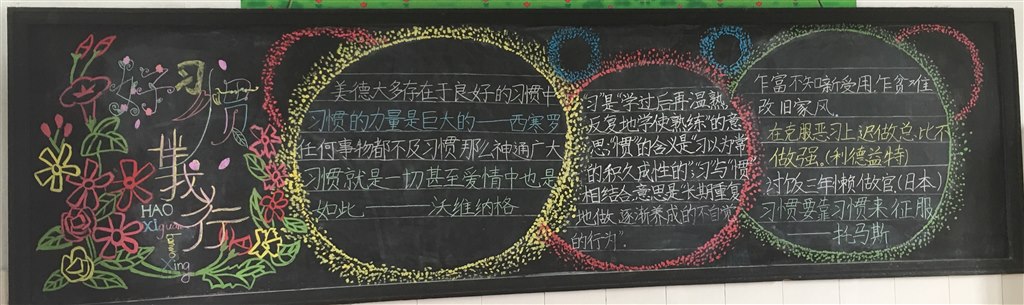 好习惯
我行
HAO
xiguan
Tamwo
xing
美德大多存在于良好的习惯中
习惯的力量是巨大的——西塞罗
任何事物都不及习惯那么神通广大
习惯就是一切甚至爱情中也是
如此.———沃维纳格
习"是"学过后再温熟
反复地学使熟练"的意
思."惯"的含义是习以为常
的积久成性的";习与"惯
相结合.意思是"长期重复
地做.逐渐养成的不自觉
的行为".
乍富不知新受用,乍贫难
改旧家风。
在克服恶习上,迟做总比不
做强。(利德益特)
讨饭三年懒做官(日本)
习惯要靠习惯来征服
——托马斯